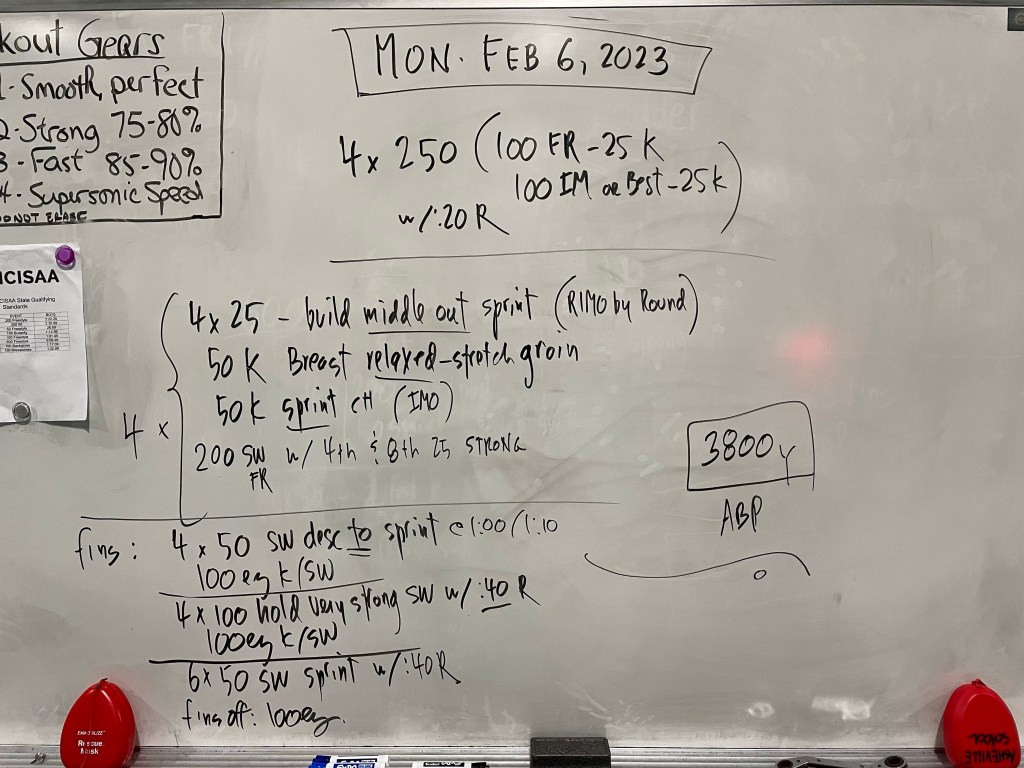 kout Gears
1-Smooth, perfect
2-Strong 75-80%
3-Fast 85-90%
4-Supersonic Speed
DO NOT ERASE
MON. FEB 6, 2023
4x 250 (100 FR-25 K
100 IM or Best-25k)
w/:20 R
NCISAA
NCISAA State Qualifying
Standards
4 x
4x 25 - build middle out sprint (RIMO by Round)
50 K Breast relaxed-stretch groin
50k sprint CH (IMO)
200 SW w/ 4th & 8th 25 STRONG
FR
3800y
ABP
fins: 4 x 50 SW desc to sprint @ 1:00/1:10
100 ez k/SW
4 x 100 hold very strong SW w/ :40 R
100ez k/SW
6x 50 SW sprint w/:40R
fins off: 100ez.
Rescue
Mask
ASHEVILLE
SCHOOL
EXPO